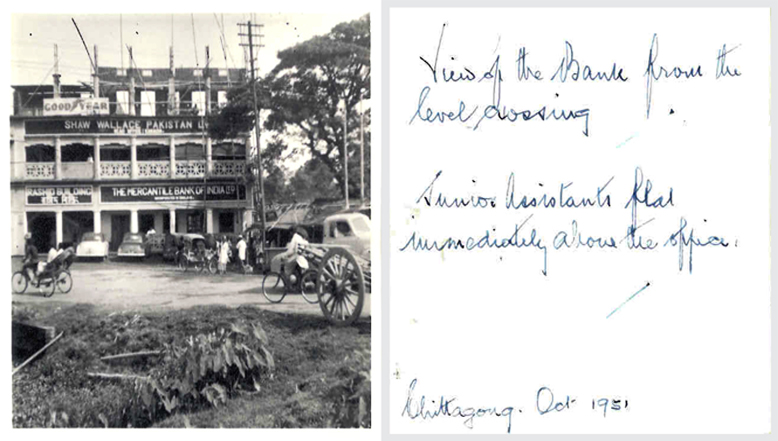 GOODYEAR
SHAW WALLACE PAKISTAN LTD
RASHID BUILDING
THE MERCANTILE BANK OF INDIA LTD
View of the Bank from the
level crossing
Junior Assistants flat
immediately above the office.
Chittagong. Oct 1951